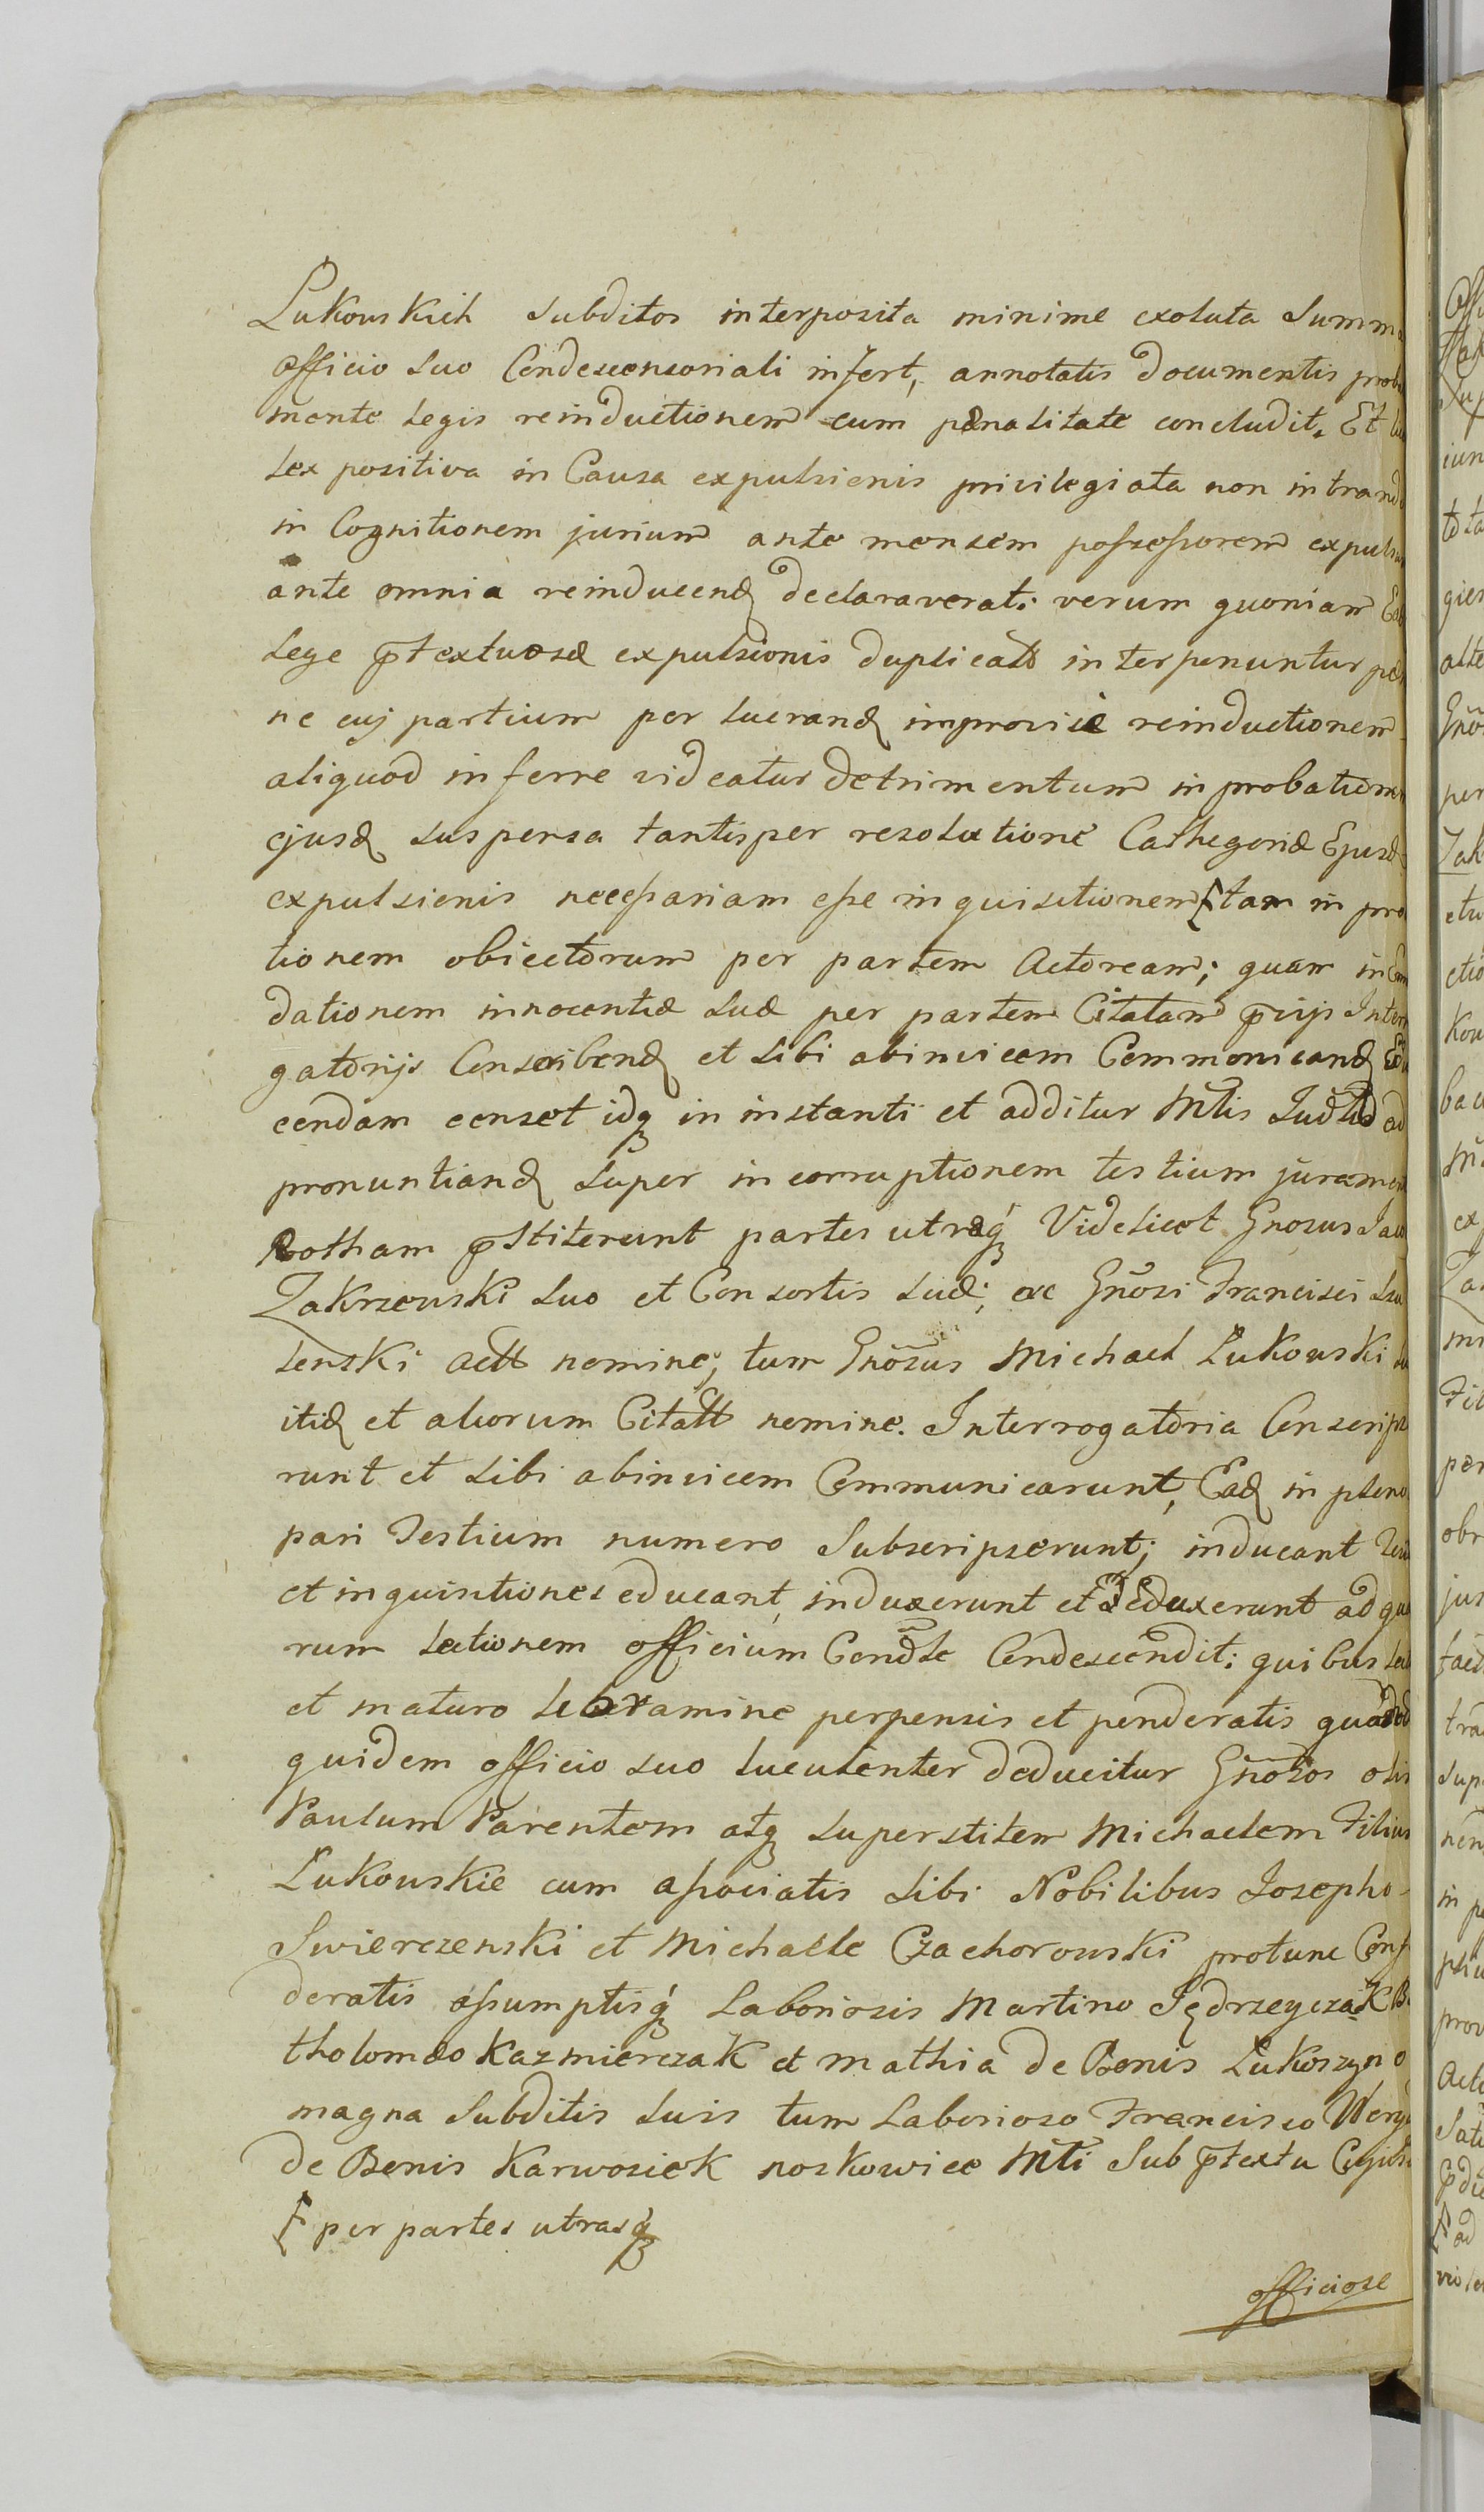 Lukowskich subditos interposita minime exoluta Summa
officio suo Condescensoriali infert, annotatis documentis
mente legis reinductionem cum pœnalitate concludit. Et
lex positiva in Causa expulsionis privilegiata non intrando
in Cognitionem jurium ante mensem possessorem
ante omnia reinducend declaraverat. verum quoniam
Lege ptextuosæ expulsionis duplicatæ interponuntur
ne cuj partium per lucrand improvie reinductionem
aliquod inferre videatur detrimentum in probationem
ejusd suspensa tantisper resolutione Cathegoriæ Ejusd
expulsionis necessariam esse inquisitionem tam in
tionem obiectorum per partem Actoream; quam in
dationem innocentiæ suæ per partem Citatam pvijs
gatorijs Conscribend et sibi abinvicem Communicand
cendam censet idq in instanti et additur Mtis ad
pronuntiand super incorruptionem testium
Rotham pstiterunt partes utræq Videlicet Gnosus
Zakrzewski suo et Consortis suæ; ac Gnosi Francisci
lenski actt nomine; tum Gnosus Michael Lukowski
itid et aliorum Citatt nomine. Interrogatoria
runt et sibi abinvicem Communicarunt, Ead in pleno
pari Testium numero Subscripserunt; inducant
et inquisitiones educant, induxerunt et Eduxerunt ad
rum lectionem officium Condle Condescendit; quibus
et maturo libramine perpensis et ponderatis
quidem officio suo luculenter deducitur Gnosos
Paulum Parentem atq superstitem Michaelem
Lukowskie cum associatis sibi Nobilibus Josepho
Swierczewski et Michaele Czachorowski protunc
deratis assumptisq Laboriosis Martino Jędrzeyczak
tholomæo Kazmierczak et Mathia de Bonis Lukoszyno
magna Subditis suis tum Laborioso Francisco
de Bonis Karwosiek noskowice Mti Sub ptextu
per partes utrasq
officiose